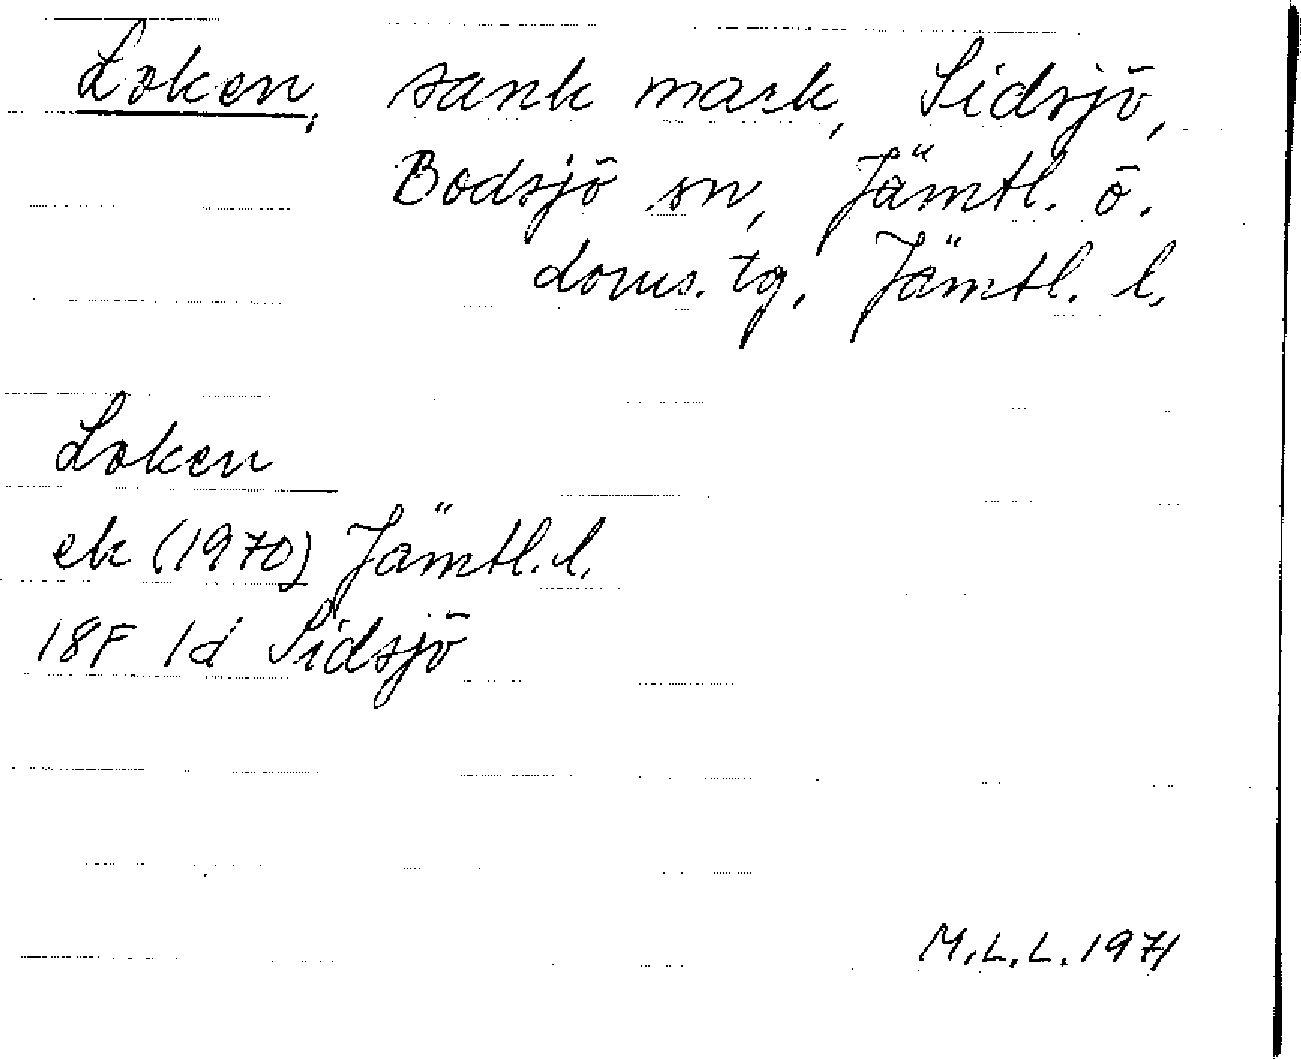 Loken, sank mark, Sidsjö,
Bodsjö sn, Jämtl. ö.
doms. tg, Jämtl. l.
Loken
ek (1970) Jämtl. l.
18F 1d Sidsjö
M.L.L. 1971